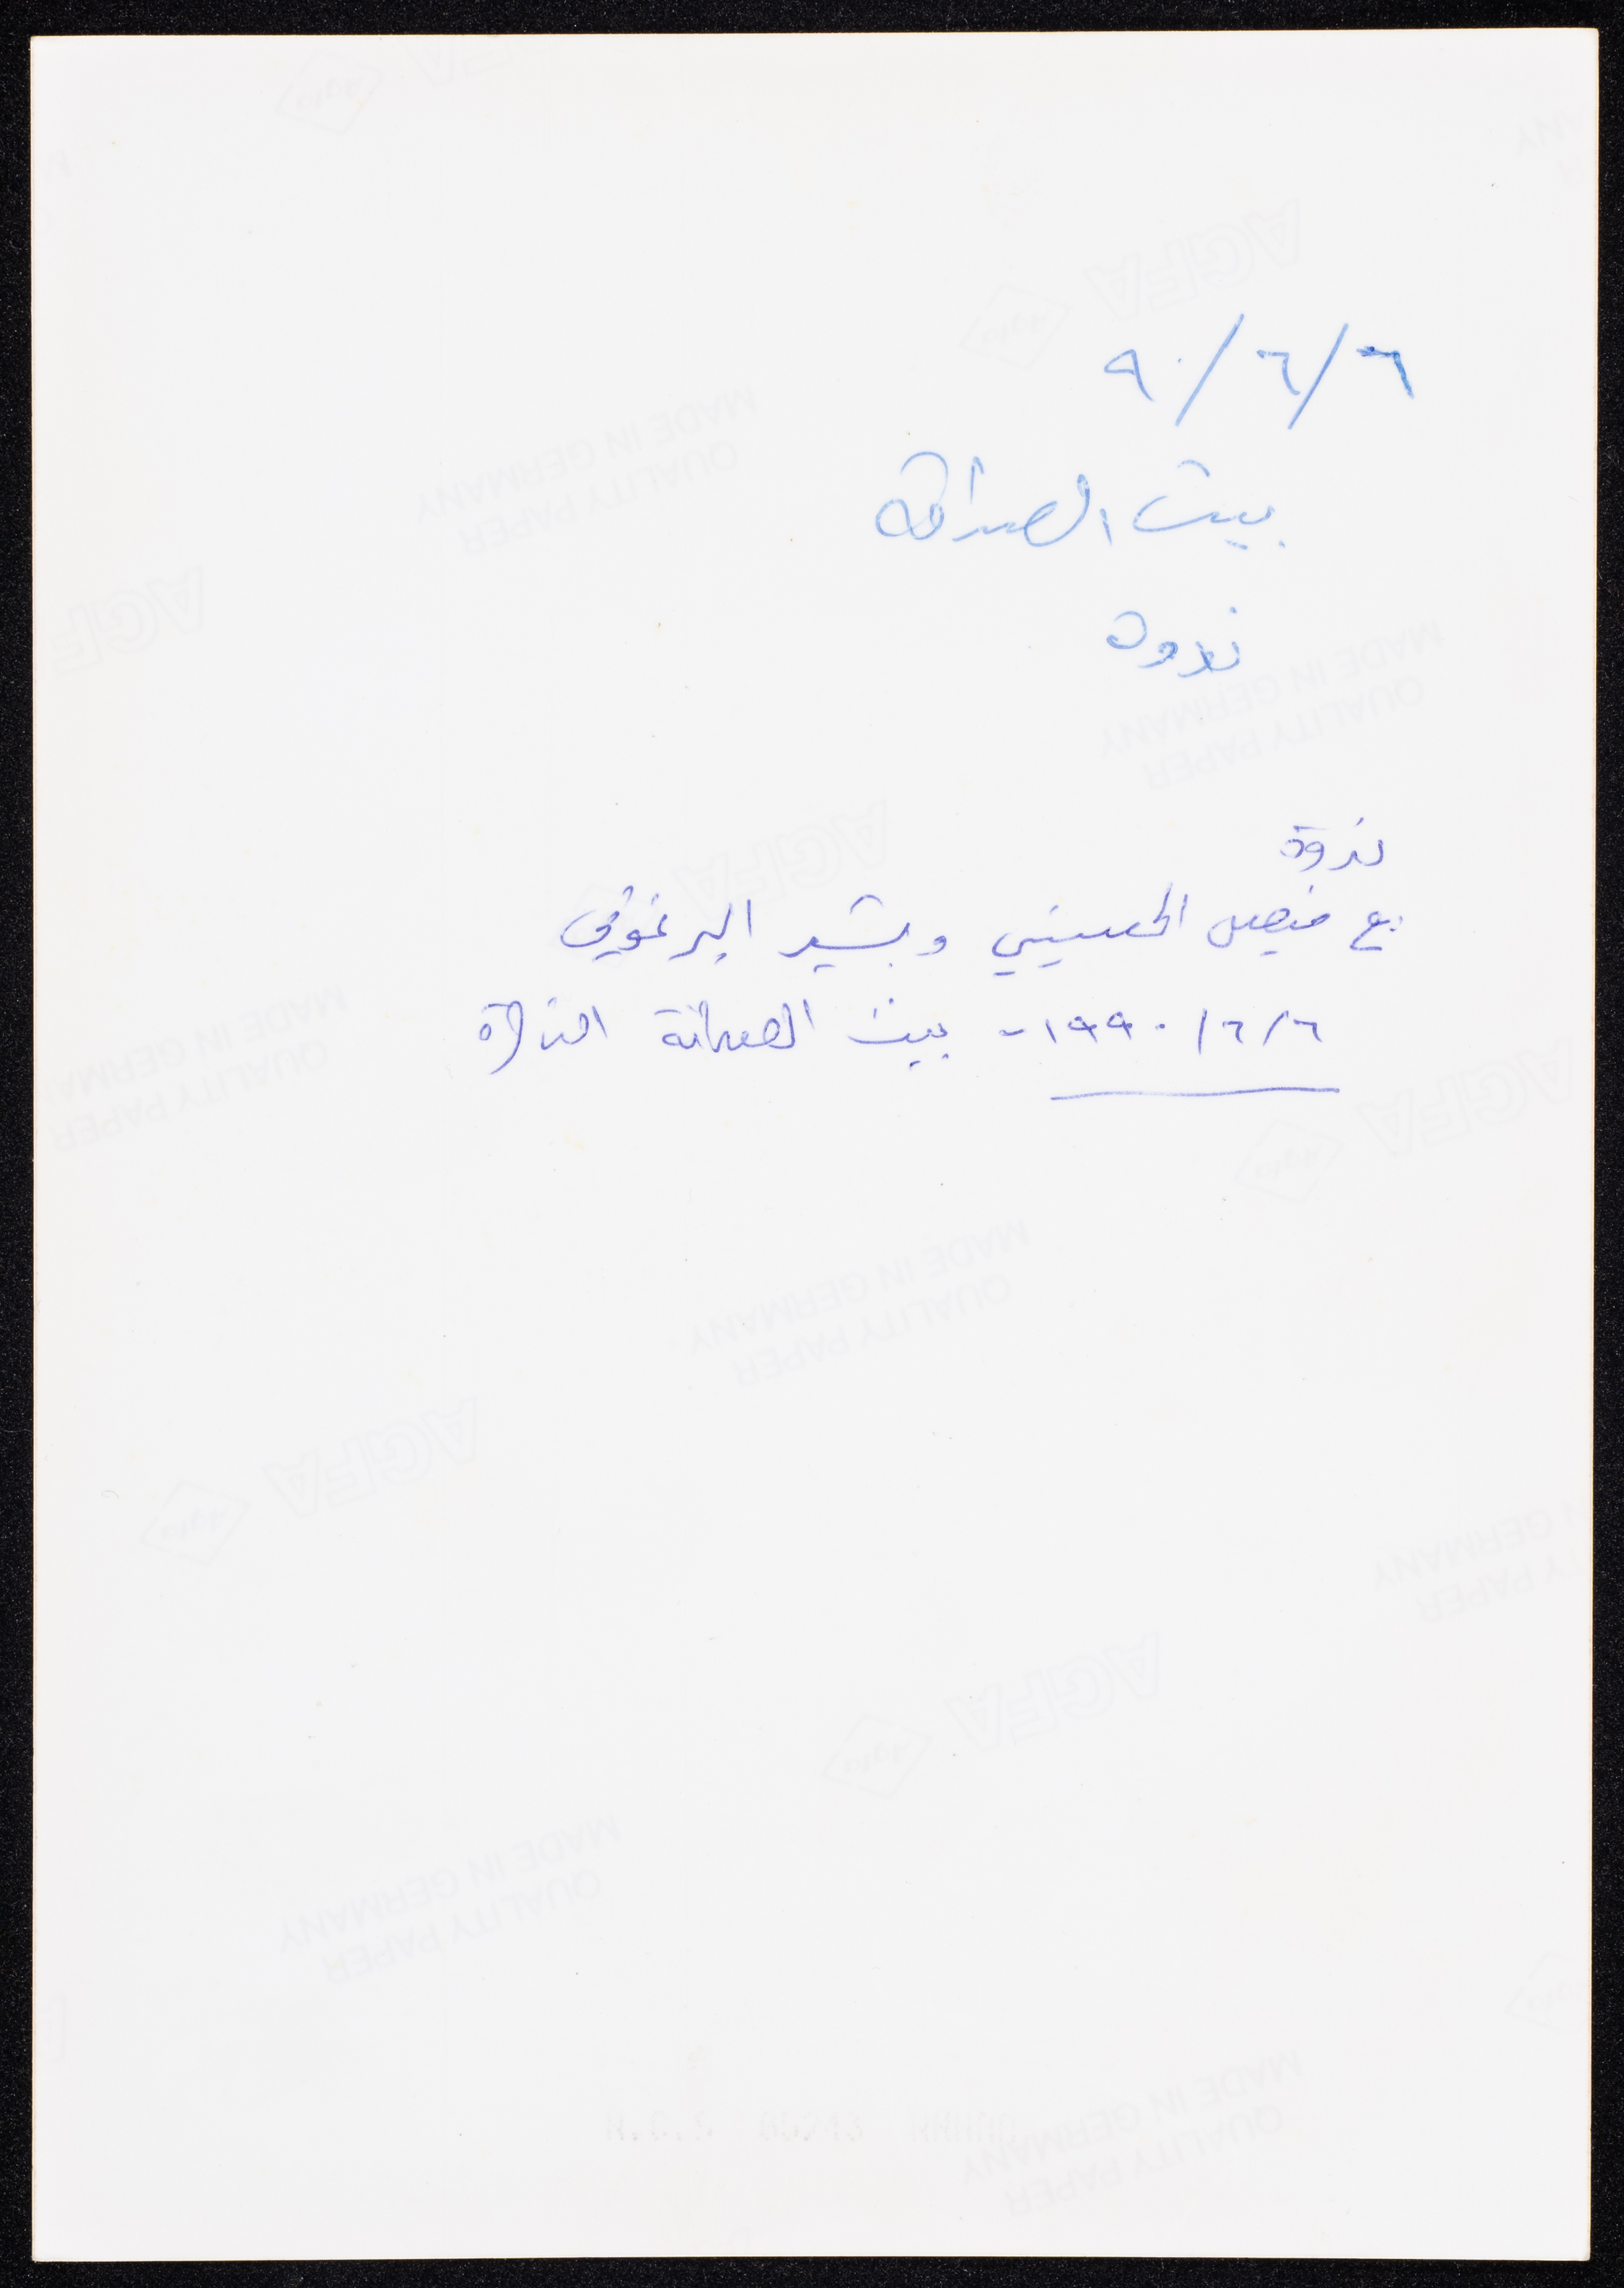 ٦/٦/٩٠
بيت الصداقة
ندوة
ندوة
مع فيصل الحسيني وبشير البرغوثي
٦/٦/١٩٩٠ - بيت الصداقة الناصرة
AGFA
Agfa
MADE IN GERMANY
QUALITY PAPER